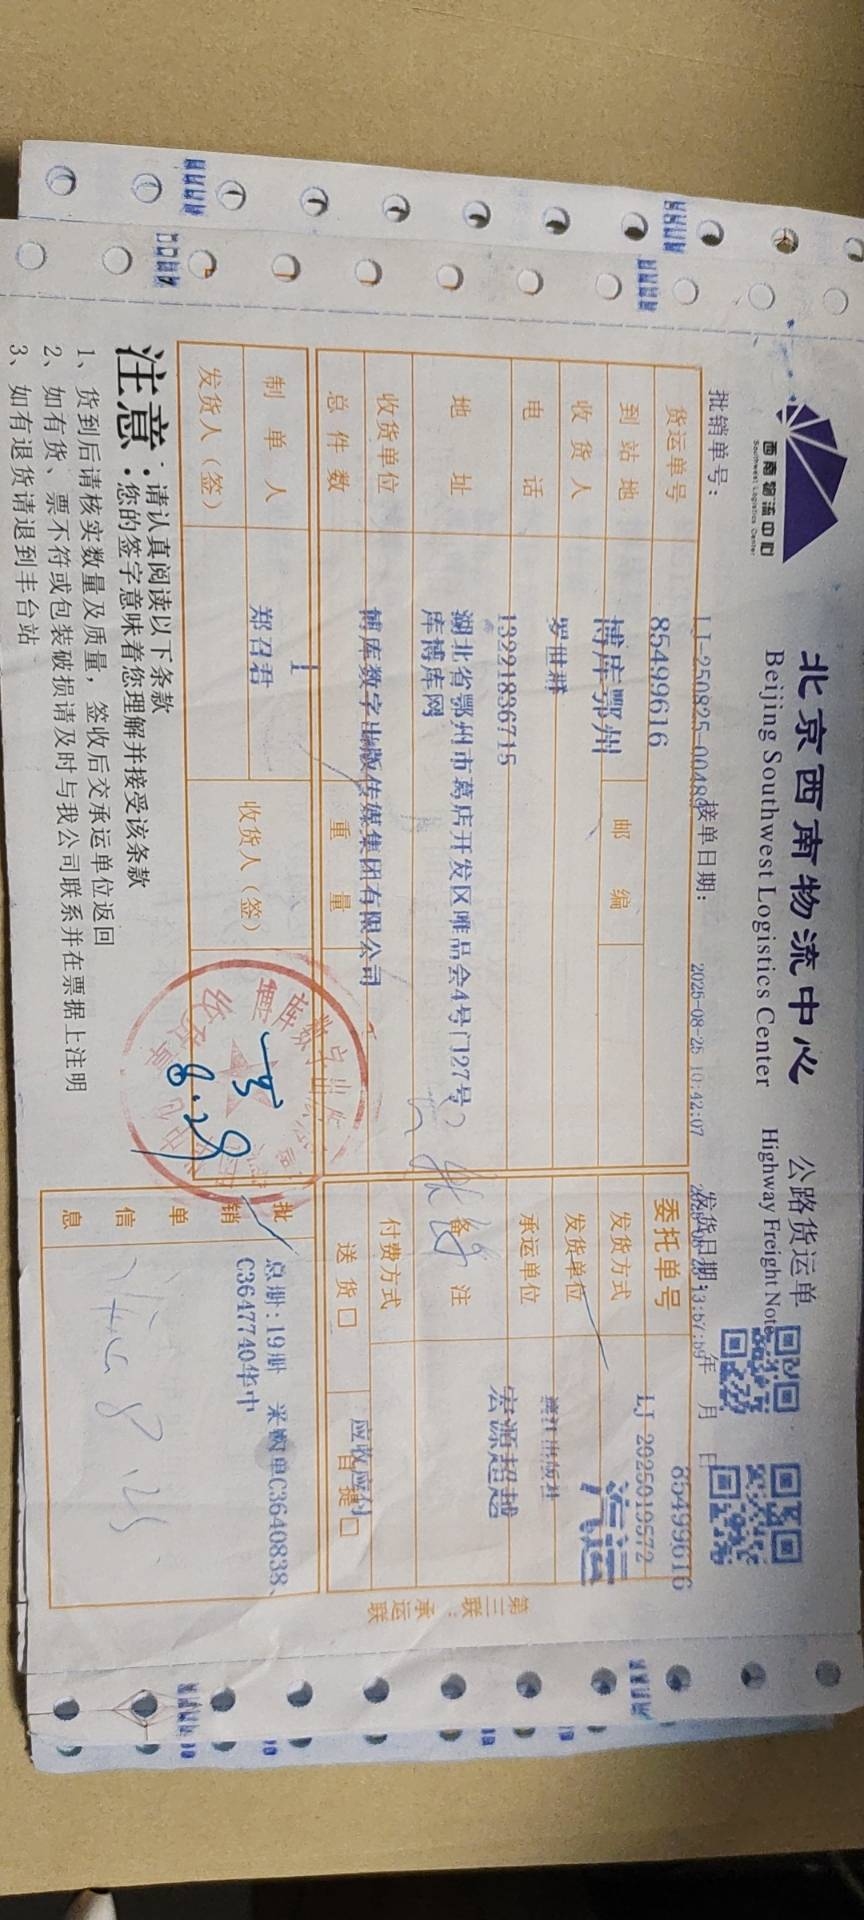 西南物流中心
Southwest Logistics Center
北京西南物流中心
公路货运单
Beijing Southwest Logistics Center
Highway Freight Note
批销单号：
LJ-250825-00488
接单日期：
2025-08-25 10:42:07
发货日期：
13:57:59
年 月 日
85499616
货运单号
85499616
委托单号
LJ-2025019572
到站地
博库鄂州
邮 编
发货方式
汽运
收 货 人
罗世群
发货单位
电 话
13221836715
承运单位
宏源超越
地 址
湖北省鄂州市葛店开发区唯品会4号门27号
库博库网
备 注
收货单位
博库数字出版传媒集团有限公司
付费方式
应收应付
总 件 数
1
重 量
送 货 □
自 提 □
制 单 人
郑召君
收货人（签）
8.29
发货人（签）
批销单信息
总册:19册 采购单C3640838、
C3647740华中
第三联：承运联
注意：
请认真阅读以下条款
您的签字意味着您理解并接受该条款
1、货到后请核实数量及质量，签收后交承运单位返回
2、如有货、票不符或包装破损请及时与我公司联系并在票据上注明
3、如有退货请退到丰台站